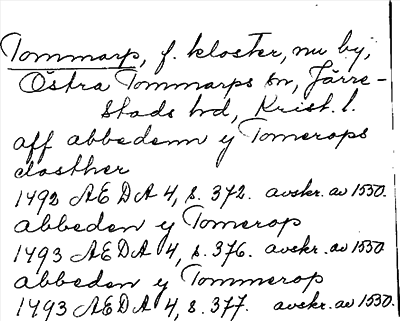 Tommarp, f. kloster, nu by,
Östra Tommarps sn, Järre-
stads hd, Krist. l.
aff abbedenn y Tomerops
closther
1492 AEDA 4, s. 372. avskr. av 1550.
abbeden y Tomerop
1493 AEDA 4, s. 376. avskr. av 1550
abbeden y Tommerop
1493 AEDA 4, s. 377. avskr. av 1550.